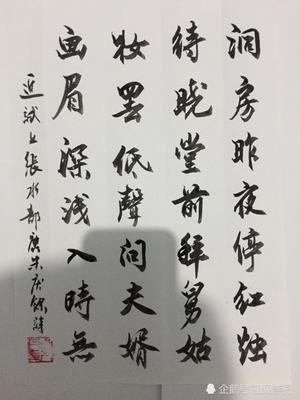 洞房昨夜停红烛
待晓堂前拜舅姑
妆罢低聲问夫婿
画眉深浅入時無
近试上張水部唐朱庆餘詩